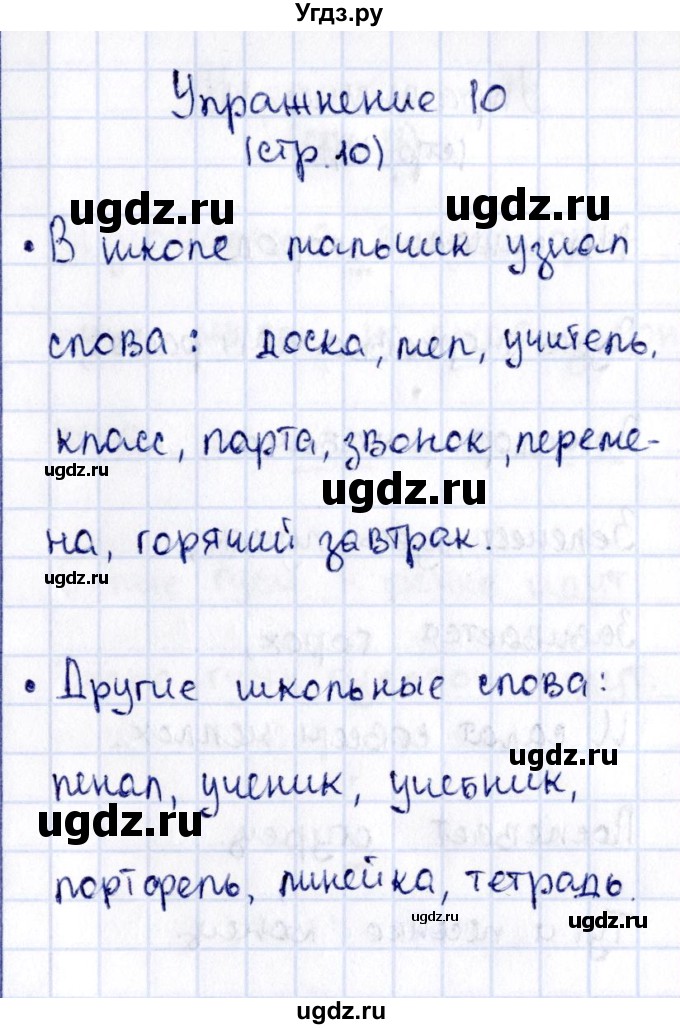 Угдз.ру
Упражнение 10
(стр.10)
ugdz.ru
ugdz.ru
• В школе мальчик узнал
слова: доска, мел, учитель,
класс, парта, звонок, переме-
ugdz.ru
ugdz.ru
на, горячий завтрак.
ugdz.ru
• Другие школьные слова:
ugdz.ru
пенал, ученик, учебник,
ugdz.ru
портфель, линейка, тетрадь.
ugdz.ru
ugdz.ru
ugdz.ru